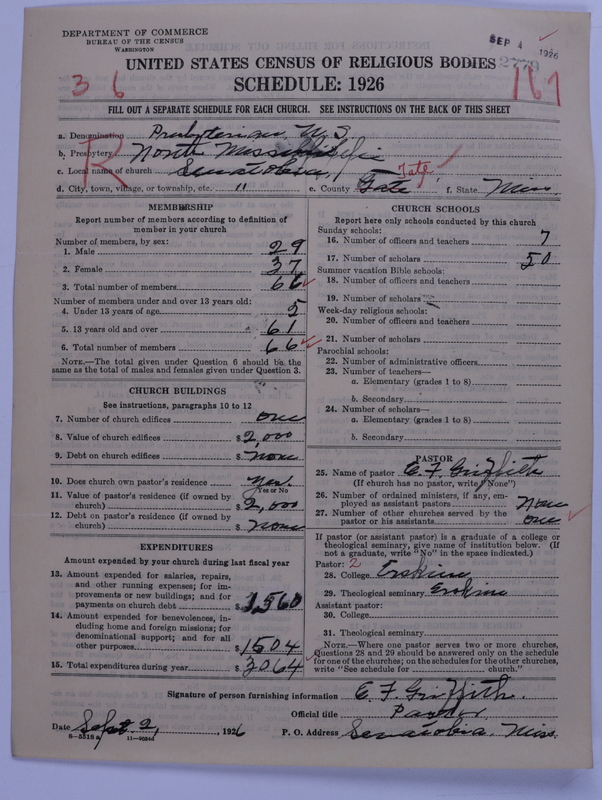 DEPARTMENT OF COMMERCE
BUREAU OF THE CENSUS
WASHINGTON
SEP 4 1926
2779
UNITED STATES CENSUS OF RELIGIOUS BODIES
SCHEDULE: 1926
36
167
FILL OUT A SEPARATE SCHEDULE FOR EACH CHURCH. SEE INSTRUCTIONS ON THE BACK OF THIS SHEET
R
a. Denomination Presbyterian, U.S.
b. Presbytery North Mississippi
c. Local name of church Senatobia, Tate
d. City, town, village, or township, etc. " e. County Tate f. State Miss
MEMBERSHIP
Report number of members according to definition of member in your church
Number of members, by sex:
1. Male 29
2. Female 37
3. Total number of members 66
Number of members under and over 13 years old:
4. Under 13 years of age 5
5. 13 years old and over 61
6. Total number of members 66
NOTE.—The total given under Question 6 should be the
same as the total of males and females given under Question 3.
CHURCH BUILDINGS
See instructions, paragraphs 10 to 12
7. Number of church edifices one
8. Value of church edifices $2,000
9. Debt on church edifices $none
10. Does church own pastor's residence Yes.
Yes or No
11. Value of pastor's residence (if owned by
church) $2,000
12. Debt on pastor's residence (if owned by
church) $none
EXPENDITURES
Amount expended by your church during last fiscal year
13. Amount expended for salaries, repairs,
and other running expenses; for im-
provements or new buildings; and for
payments on church debt $1,560
14. Amount expended for benevolences, in-
cluding home and foreign missions; for
denominational support; and for all
other purposes $1504
15. Total expenditures during year $3064
CHURCH SCHOOLS
Report here only schools conducted by this church
Sunday schools:
16. Number of officers and teachers 7
17. Number of scholars 50
Summer vacation Bible schools:
18. Number of officers and teachers
19. Number of scholars
Week-day religious schools:
20. Number of officers and teachers
21. Number of scholars
Parochial schools:
22. Number of administrative officers
23. Number of teachers—
a. Elementary (grades 1 to 8)
b. Secondary
24. Number of scholars—
a. Elementary (grades 1 to 8)
b. Secondary
PASTOR
25. Name of pastor E. F. Griffith
(If church has no pastor, write "None")
26. Number of ordained ministers, if any, em-
ployed as assistant pastors None
27. Number of other churches served by the
pastor or his assistants one
If pastor (or assistant pastor) is a graduate of a college or
theological seminary, give name of institution below. (If
not a graduate, write "No" in the space indicated.)
Pastor: 2
28. College Erskine
29. Theological seminary Erskine
Assistant pastor:
30. College
31. Theological seminary
NOTE.—Where one pastor serves two or more churches,
Questions 28 and 29 should be answered only on the schedule
for one of the churches; on the schedules for the other churches,
write "See schedule for church."
Signature of person furnishing information E. F. Griffith.
Official title Pastor
Date Sept. 2, 1926 P. O. Address Senatobia, Miss.